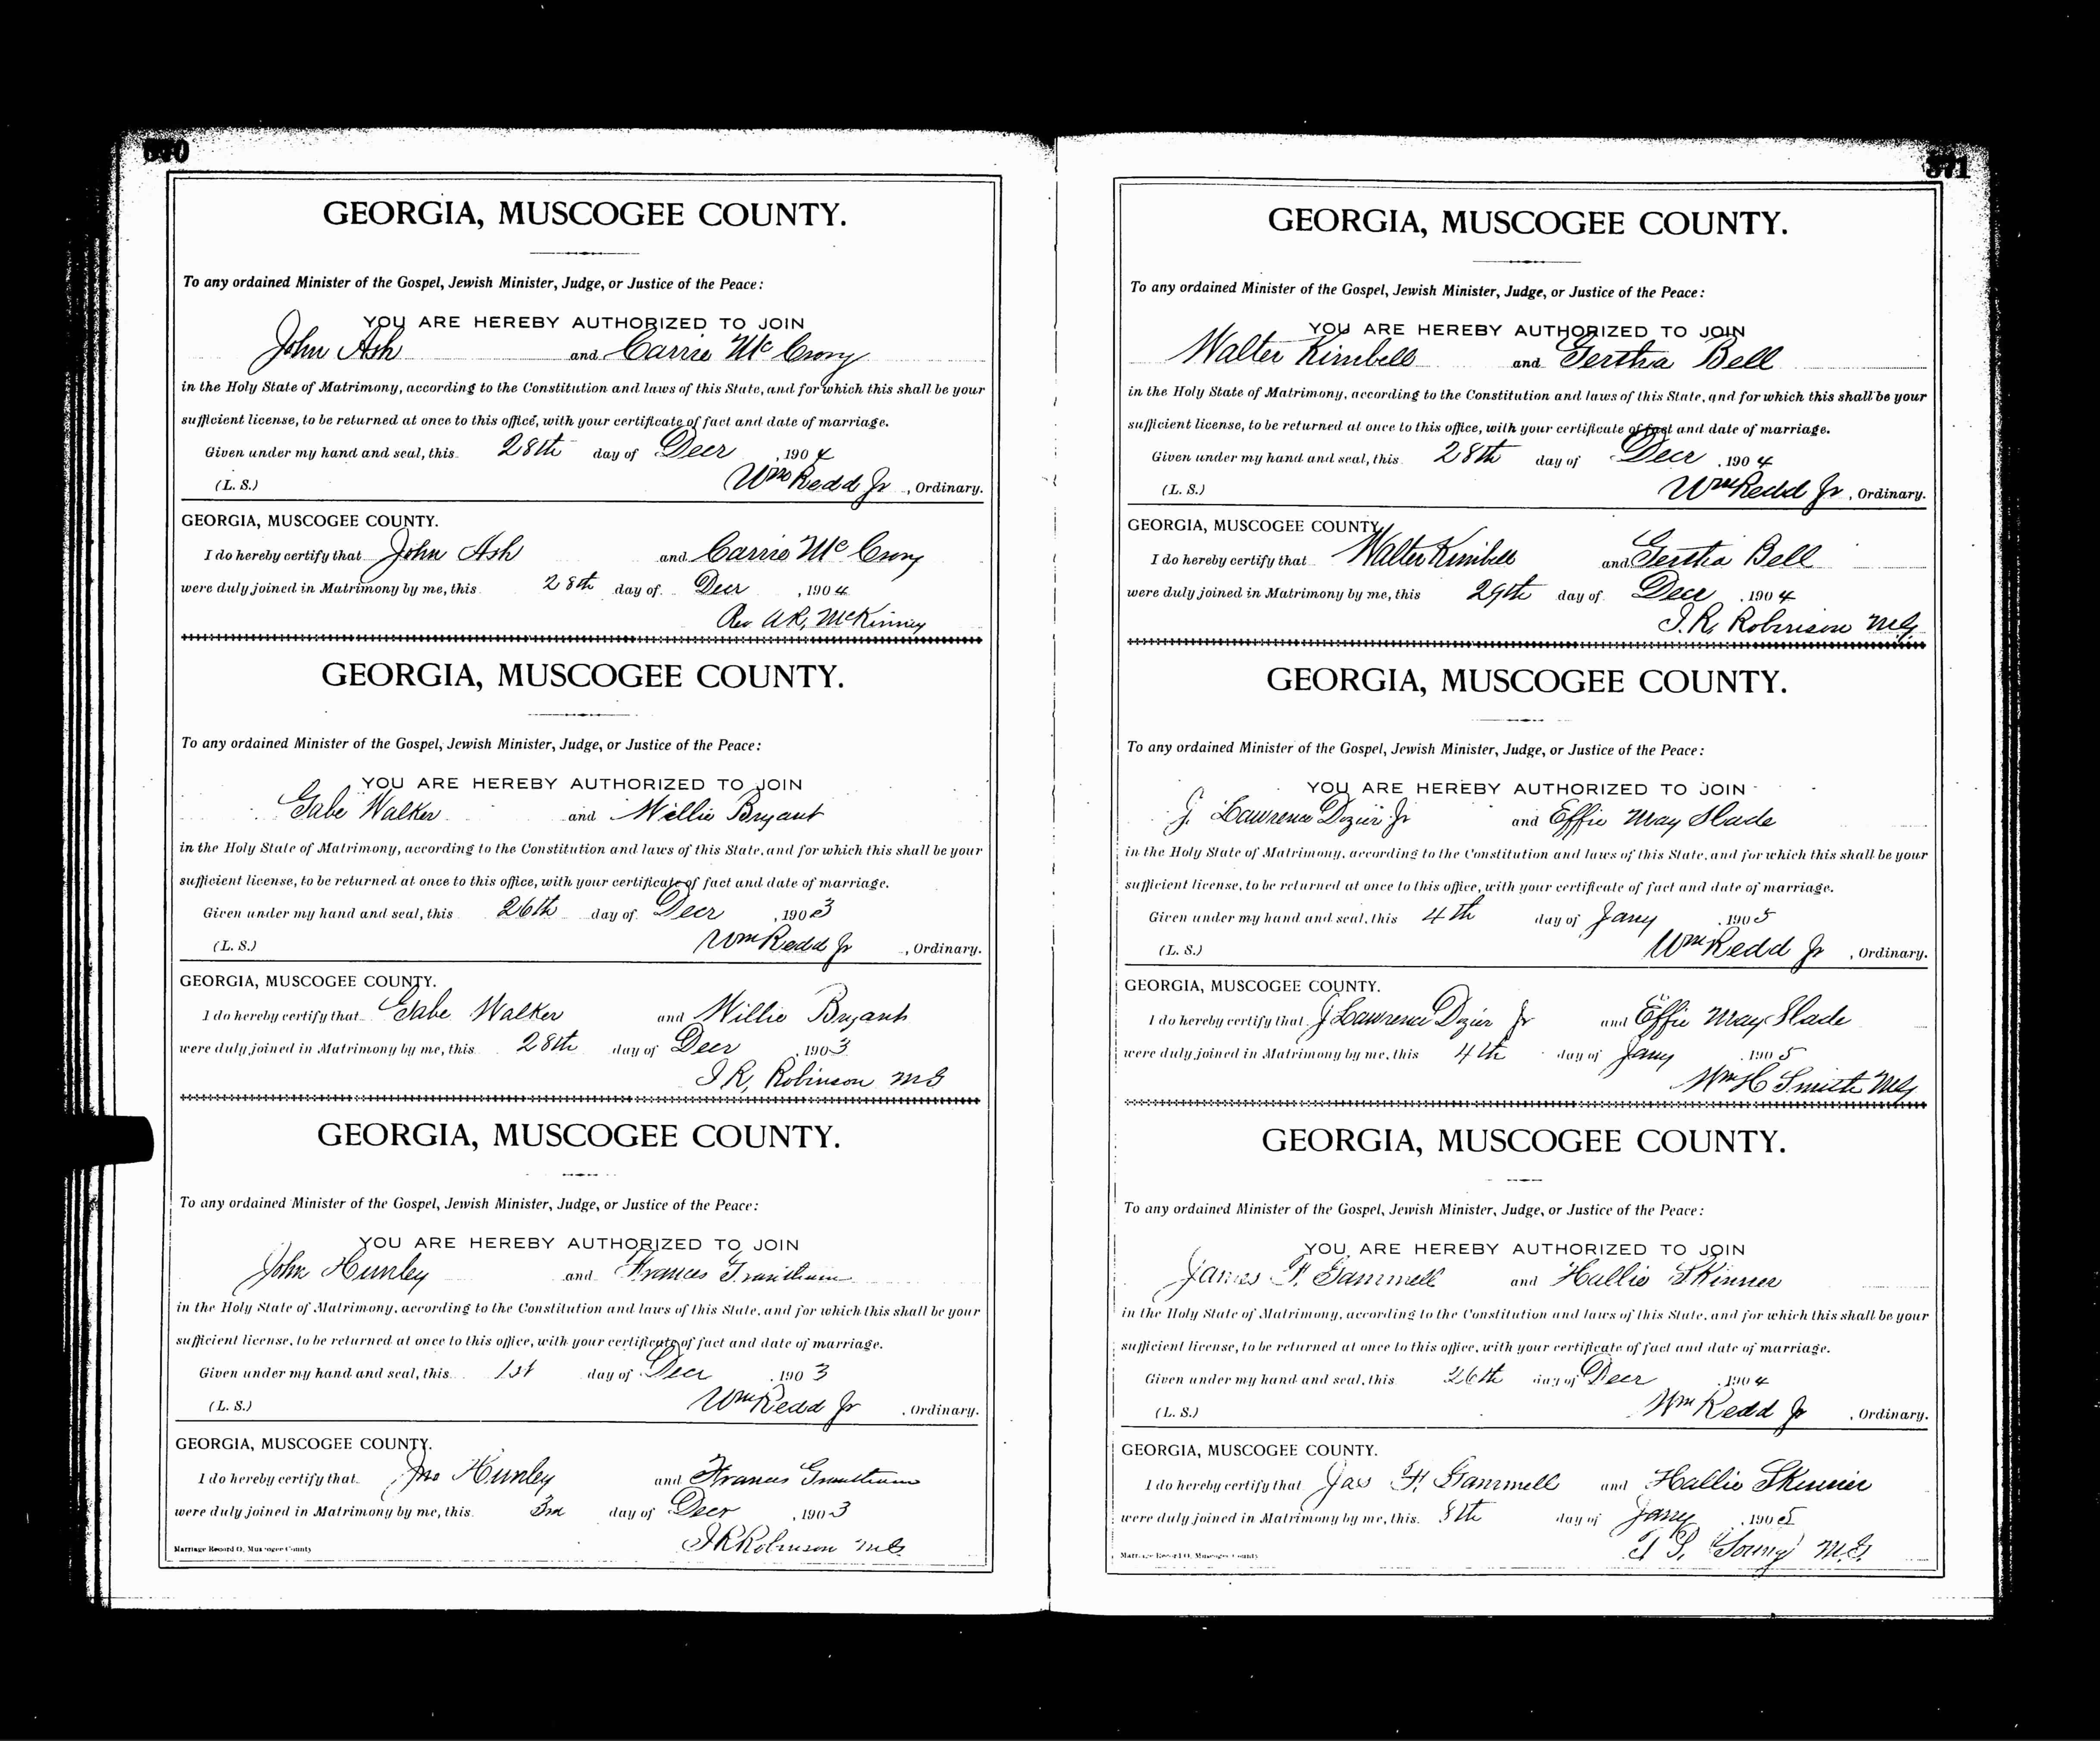 GEORGIA, MUSCOGEE COUNTY.
To any ordained Minister of the Gospel, Jewish Minister, Judge, or Justice of the Peace:
YOU ARE HEREBY AUTHORIZED TO JOIN
John Ash and Carrie McCrory
in the Holy State of Matrimony, according to the Constitution and laws of this State, and for which this shall be your
sufficient license, to be returned at once to this office, with your certificate of fact and date of marriage.
Given under my hand and seal, this 28th day of Decr, 1904
(L. S.) Wm Redd Jr, Ordinary.
GEORGIA, MUSCOGEE COUNTY.
I do hereby certify that John Ash and Carrie McCrory
were duly joined in Matrimony by me, this 28th day of Decr, 1904
Rev A R, McKinney
GEORGIA, MUSCOGEE COUNTY.
To any ordained Minister of the Gospel, Jewish Minister, Judge, or Justice of the Peace:
YOU ARE HEREBY AUTHORIZED TO JOIN
Gabe Walker and Willie Bryant
in the Holy State of Matrimony, according to the Constitution and laws of this State, and for which this shall be your
sufficient license, to be returned at once to this office, with your certificate of fact and date of marriage.
Given under my hand and seal, this 26th day of Decr, 1903
(L. S.) Wm Redd Jr, Ordinary.
GEORGIA, MUSCOGEE COUNTY.
I do hereby certify that Gabe Walker and Willie Bryant
were duly joined in Matrimony by me, this 28th day of Decr, 1903
J R, Robinson MG
GEORGIA, MUSCOGEE COUNTY.
To any ordained Minister of the Gospel, Jewish Minister, Judge, or Justice of the Peace:
YOU ARE HEREBY AUTHORIZED TO JOIN
John Hunley and Frances
in the Holy State of Matrimony, according to the Constitution and laws of this State, and for which this shall be your
sufficient license, to be returned at once to this office, with your certificate of fact and date of marriage.
Given under my hand and seal, this 1st day of Decr, 1903
(L. S.) Wm Redd Jr, Ordinary.
GEORGIA, MUSCOGEE COUNTY.
I do hereby certify that Jno Hunley and Frances
were duly joined in Matrimony by me, this 3rd day of Decr, 1903
J R Robinson MG
Marriage Record O, Muscogee County
571
GEORGIA, MUSCOGEE COUNTY.
To any ordained Minister of the Gospel, Jewish Minister, Judge, or Justice of the Peace:
YOU ARE HEREBY AUTHORIZED TO JOIN
Walter Kimbell and Gertha Bell
in the Holy State of Matrimony, according to the Constitution and laws of this State, and for which this shall be your
sufficient license, to be returned at once to this office, with your certificate of fact and date of marriage.
Given under my hand and seal, this 28th day of Decr, 1904
(L. S.) Wm Redd Jr, Ordinary.
GEORGIA, MUSCOGEE COUNTY.
I do hereby certify that Walter Kimbell and Gertha Bell
were duly joined in Matrimony by me, this 29th day of Decr, 1904
J. R, Robinson MG
GEORGIA, MUSCOGEE COUNTY.
To any ordained Minister of the Gospel, Jewish Minister, Judge, or Justice of the Peace:
YOU ARE HEREBY AUTHORIZED TO JOIN
J. Lawrence Dozier Jr and Effie May Slade
in the Holy State of Matrimony, according to the Constitution and laws of this State, and for which this shall be your
sufficient license, to be returned at once to this office, with your certificate of fact and date of marriage.
Given under my hand and seal, this 4th day of Jany, 1905
(L. S.) Wm Redd Jr, Ordinary.
GEORGIA, MUSCOGEE COUNTY.
I do hereby certify that J Lawrence Dozier Jr and Effie May Slade
were duly joined in Matrimony by me, this 4th day of Jany, 1905
Wm H Smith MG
GEORGIA, MUSCOGEE COUNTY.
To any ordained Minister of the Gospel, Jewish Minister, Judge, or Justice of the Peace:
YOU ARE HEREBY AUTHORIZED TO JOIN
James F. Gammell and Hallie Skinner
in the Holy State of Matrimony, according to the Constitution and laws of this State, and for which this shall be your
sufficient license, to be returned at once to this office, with your certificate of fact and date of marriage.
Given under my hand and seal, this 26th day of Decr, 1904
(L. S.) Wm Redd Jr, Ordinary.
GEORGIA, MUSCOGEE COUNTY.
I do hereby certify that Jas F. Gammell and Hallie Skinner
were duly joined in Matrimony by me, this 8th day of Jany, 1905
Young M.G.
Marriage Record O, Muscogee County